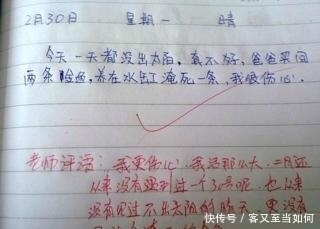 2月30日 星期一 晴
今天一天都没出太阳,真不好,爸爸买回
两条鱼,养在水缸淹死一条,我很伤心.
老师评语:我更伤心,我活那么大,二月还
从来没有遇到过一个30号呢,也从来
没有见过不出太阳的晴天,更没有
快传号 / 客又至当如何